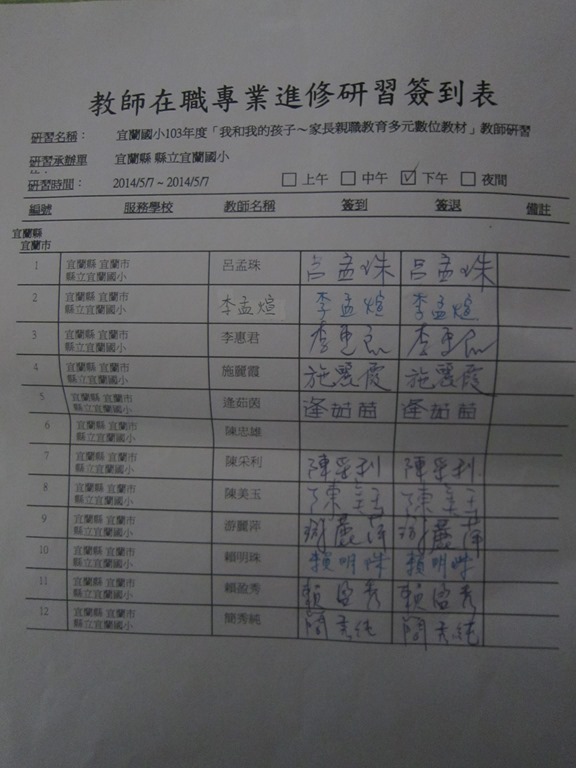 教師在職專業進修研習簽到表
研習名稱： 宜蘭國小103年度「我和我的孩子～家長親職教育多元數位教材」教師研習
研習承辦單 宜蘭縣 縣立宜蘭國小
研習時間： 2014/5/7～2014/5/7 □ 上午 □ 中午 ☑ 下午 □ 夜間
編號 服務學校 教師名稱 簽到 簽退 備註
宜蘭縣
宜蘭市
1 宜蘭縣 宜蘭市 呂孟珠 呂孟珠 呂孟珠
縣立宜蘭國小
2 宜蘭縣 宜蘭市 李孟煊 李孟煊 李孟煊
縣立宜蘭國小
3 宜蘭縣 宜蘭市 李惠君 李惠君 李惠君
縣立宜蘭國小
4 宜蘭縣 宜蘭市 施麗霞 施麗霞 施麗霞
縣立宜蘭國小
5 宜蘭縣 宜蘭市 逄茹茵 逄茹茵 逄茹茵
縣立宜蘭國小
6 宜蘭縣 宜蘭市 陳忠雄
縣立宜蘭國小
7 宜蘭縣 宜蘭市 陳采利 陳采利 陳采利
縣立宜蘭國小
8 宜蘭縣 宜蘭市 陳美玉 陳美玉 陳美玉
縣立宜蘭國小
9 宜蘭縣 宜蘭市 游麗萍 游麗萍 游麗萍
縣立宜蘭國小
10 宜蘭縣 宜蘭市 賴明珠 賴明珠 賴明珠
縣立宜蘭國小
11 宜蘭縣 宜蘭市 賴盈秀 賴盈秀 賴盈秀
縣立宜蘭國小
12 宜蘭縣 宜蘭市 簡秀純 簡秀純 簡秀純
縣立宜蘭國小